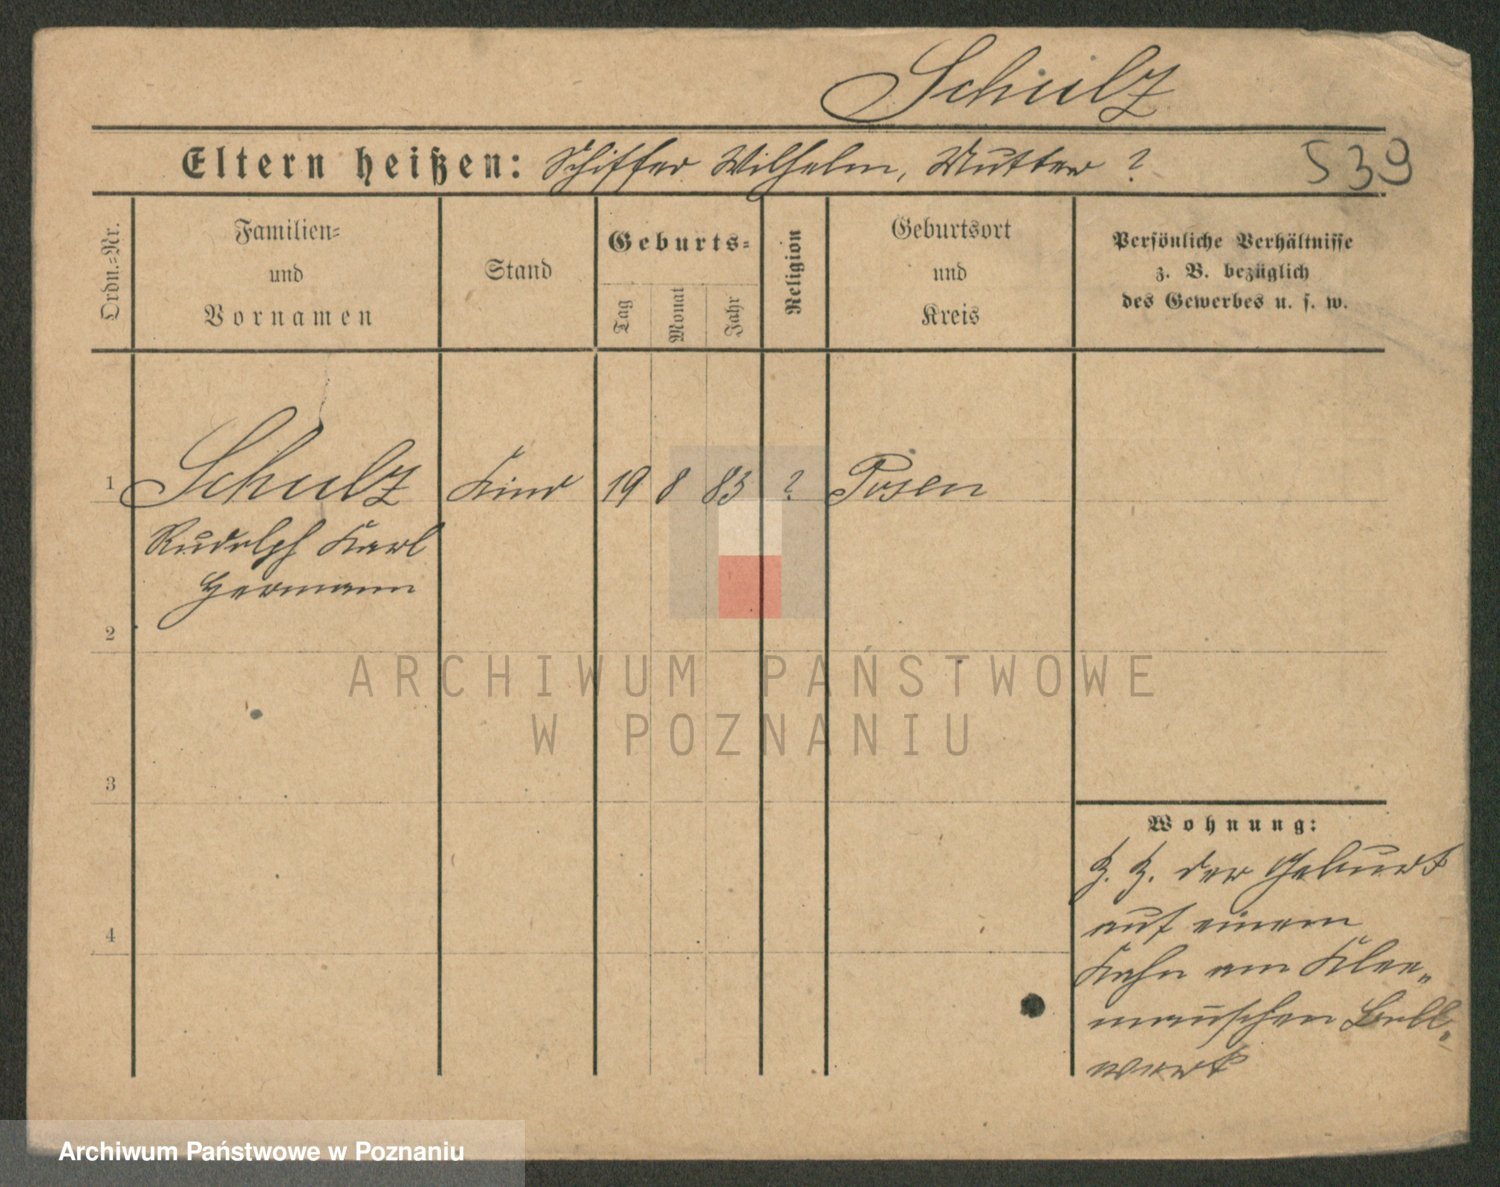 Schulz
Eltern heißen: Schiffer Wilhelm, Mutter ?
539
Ordn.=Nr.
Familien=
und
Vornamen
Stand
Geburts=
Tag
Monat
Jahr
Religion
Geburtsort
und
Kreis
Persönliche Verhältnisse
z. B. bezüglich
des Gewerbes u. s. w.
1 Schulz Kind 19 8 83 ? Posen
Rudolph Karl
Hermann
2
3
4
Wohnung:
z. Z. der Geburt
auf einem
Kahn am Klee-
mannschen Boll-
werk
ARCHIWUM PAŃSTWOWE
W POZNANIU
Archiwum Państwowe w Poznaniu